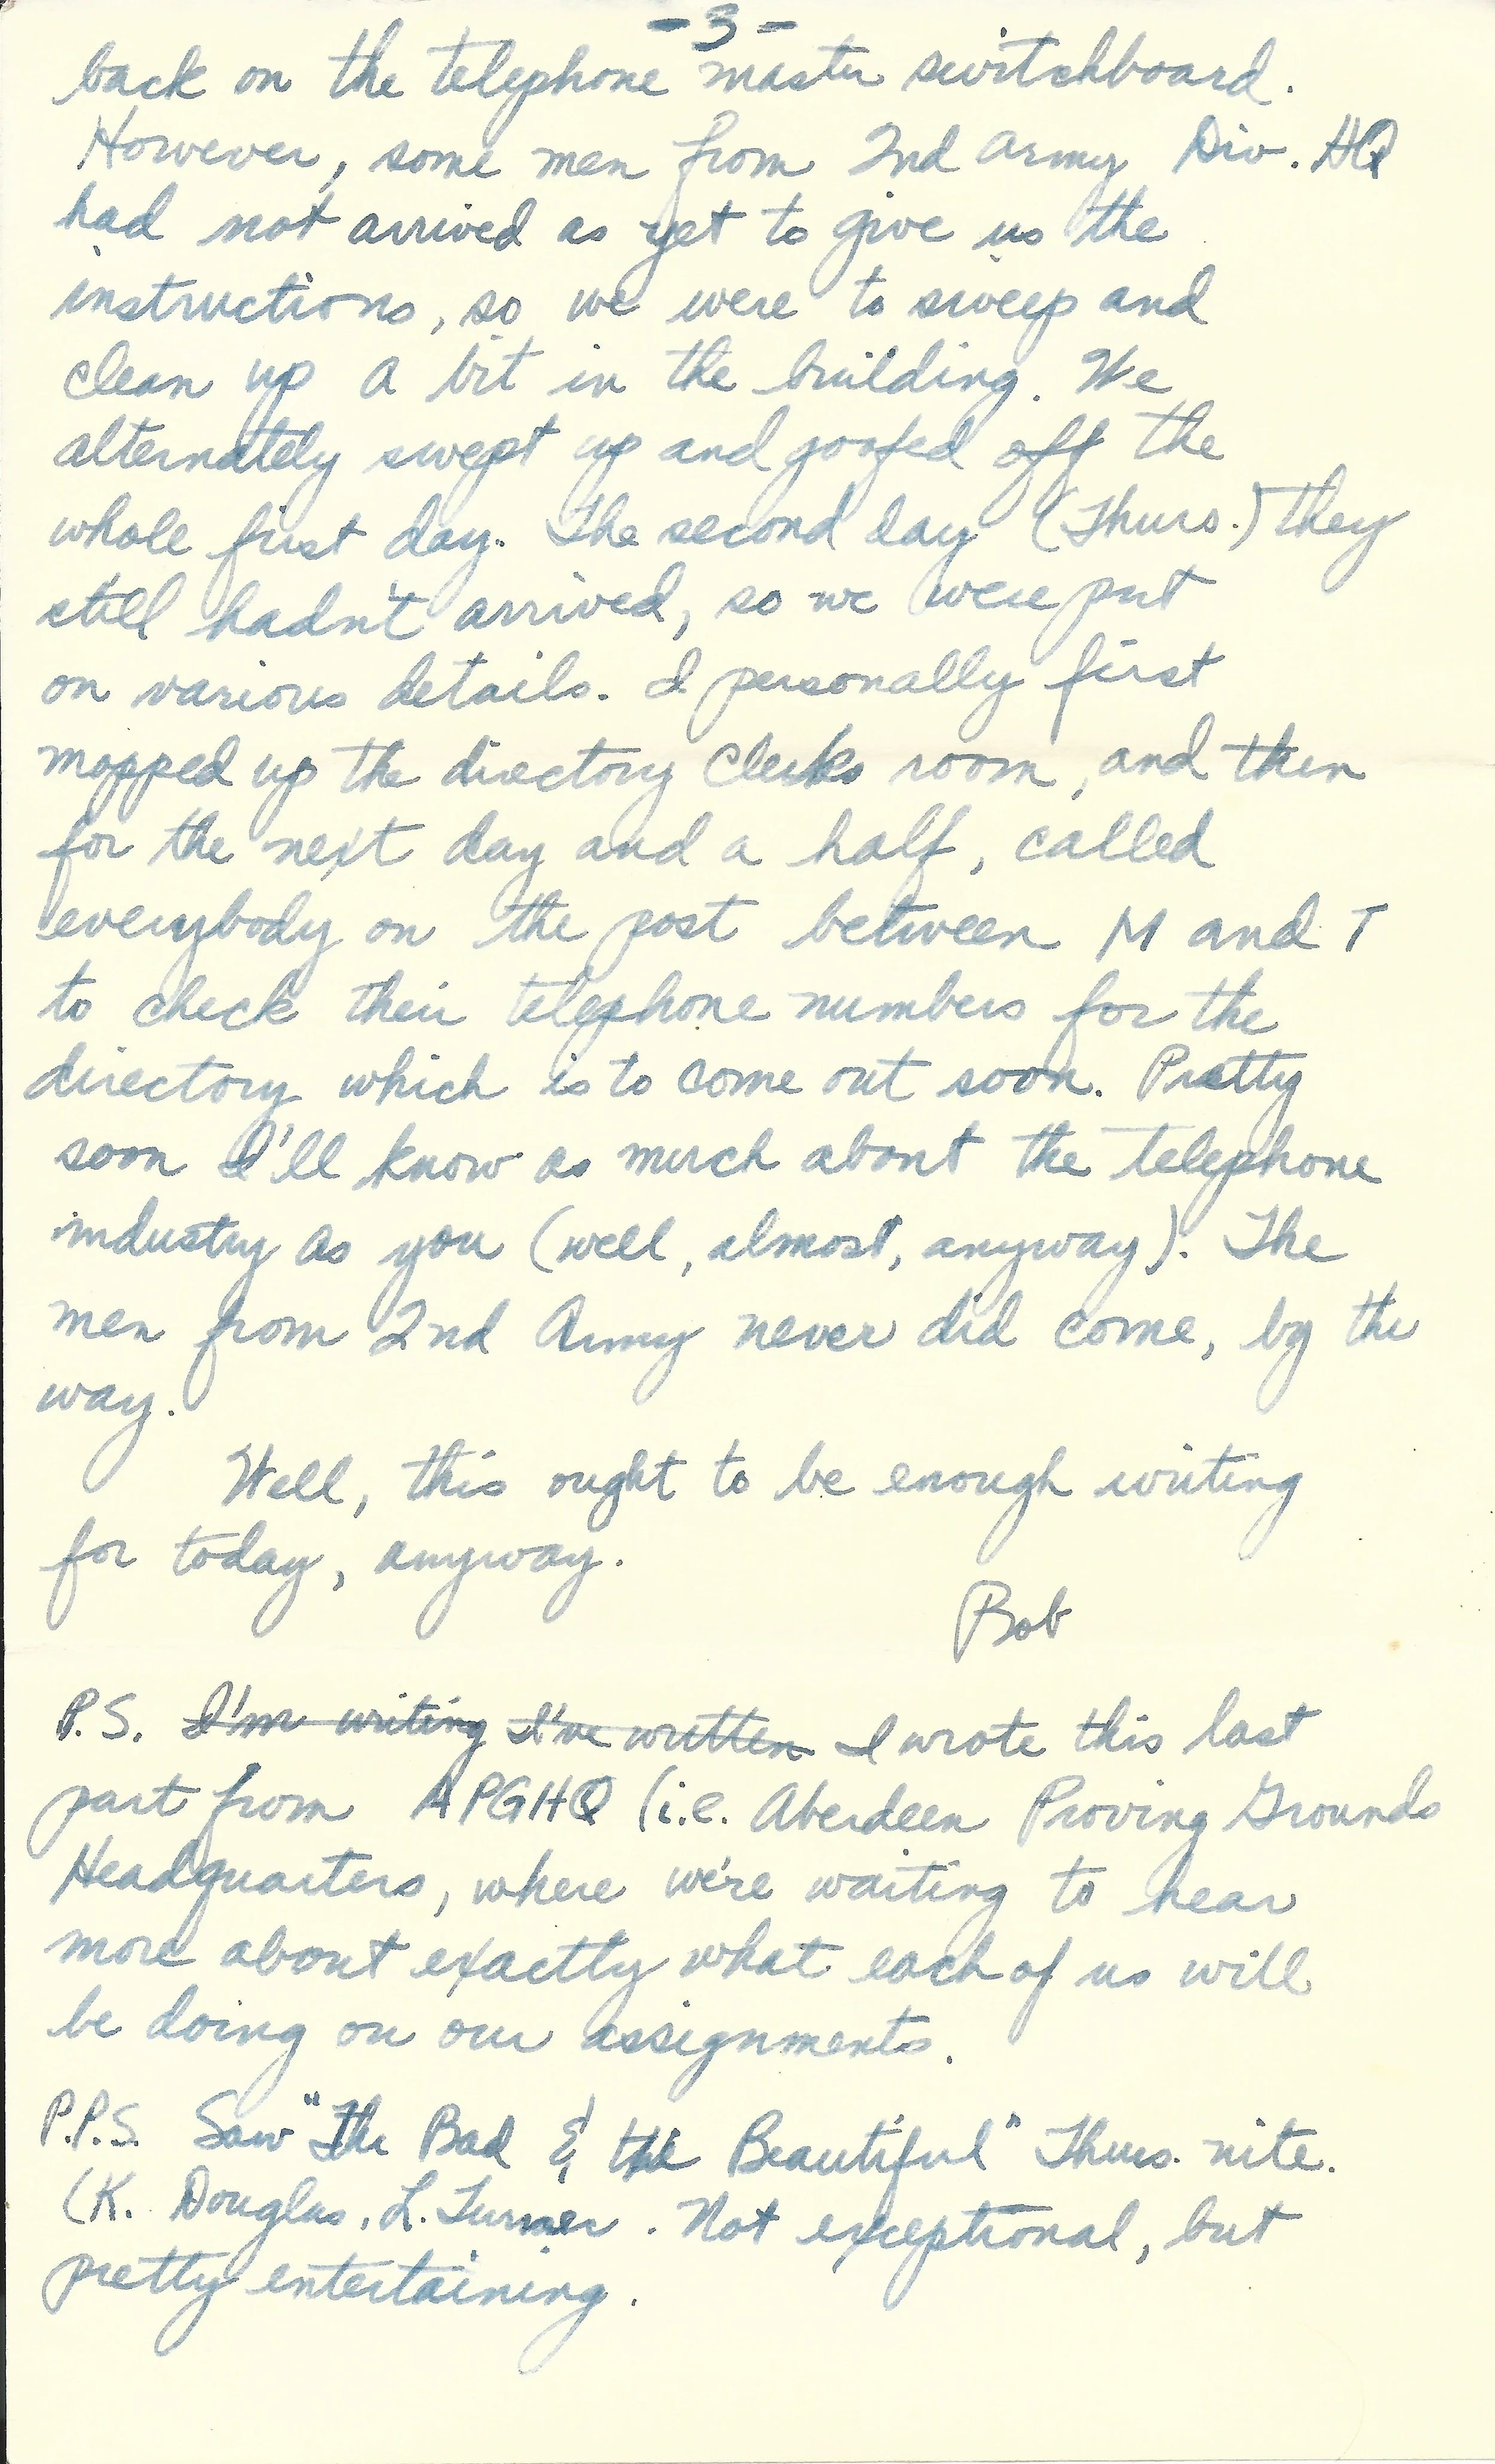 -3-
back on the telephone master switchboard.
However, some men from 2nd Army Div. HQ
had not arrived as yet to give us the
instructions, so we were to sweep and
clean up a bit in the building. We
alternately swept up and goofed off the
whole first day. The second day (Thurs.) they
still hadn't arrived, so we were put
on various details. I personally first
mopped up the directory clerks room, and then
for the next day and a half, called
everybody on the post between M and T
to check their telephone numbers for the
directory which is to come out soon. Pretty
soon I'll know as much about the telephone
industry as you (well, almost, anyway). The
men from 2nd Army never did come, by the
way.
Well, this ought to be enough writing
for today, anyway.
Bob
P.S. I'm writing I've written I wrote this last
part from APGHQ (i.e. Aberdeen Proving Grounds
Headquarters, where we're waiting to hear
more about exactly what each of us will
be doing on our assignments.
P.P.S. Saw "The Bad & the Beautiful" Thurs. nite.
(K. Douglas, L. Turner. Not exceptional, but
pretty entertaining.